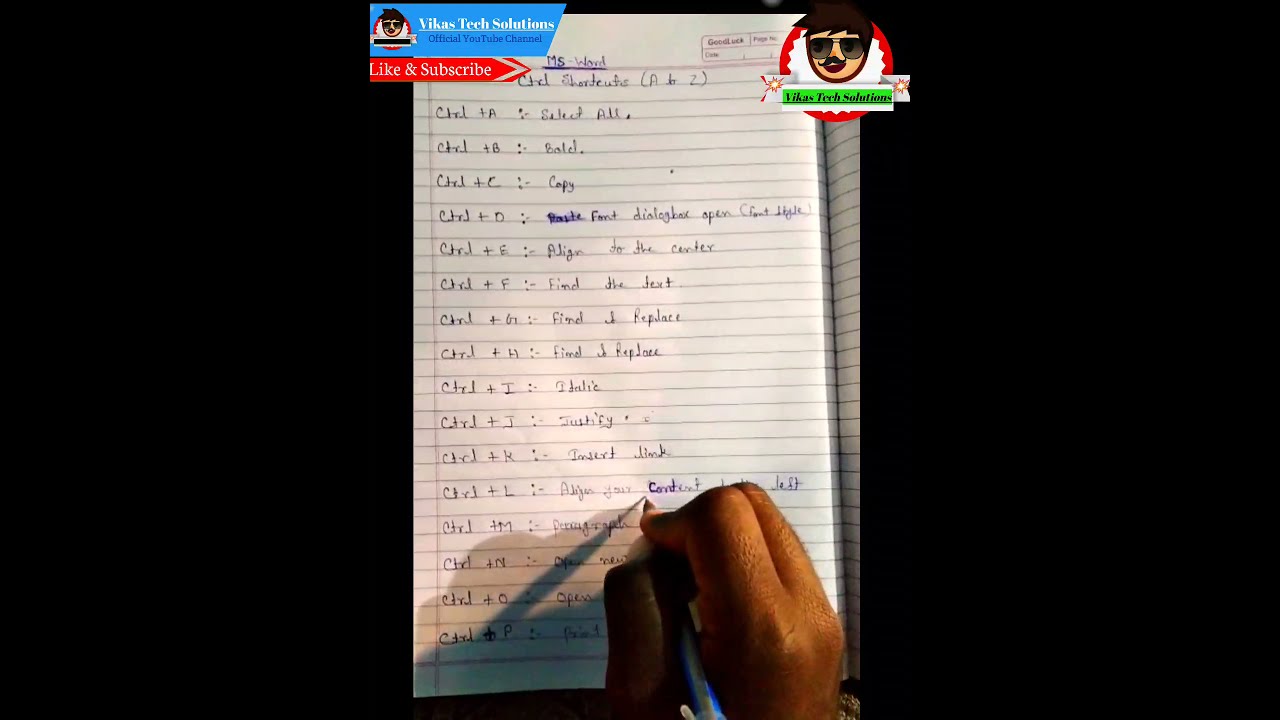 Vikas Tech Solutions
Official YouTube Channel
Like & Subscribe
GoodLuck Page No.
Date
Vikas Tech Solutions
MS-Word
Ctrl Shortcuts (A to Z)
Ctrl +A :- Select All.
Ctrl +B :- Bold.
Ctrl +C :- Copy
Ctrl + D :- Font dialogbox open (Font Style)
Ctrl + E :- Align to the center
Ctrl + F :- Find the text
Ctrl + G :- Find & Replace
Ctrl + H :- Find & Replace
Ctrl + I :- Italic
Ctrl + J :- Justify
Ctrl + K :- Insert link
Ctrl + L :- Align your Content left
Ctrl +M :- Paragraph
Ctrl +N :- Open new
Ctrl + O :- Open
Ctrl + P :- Print